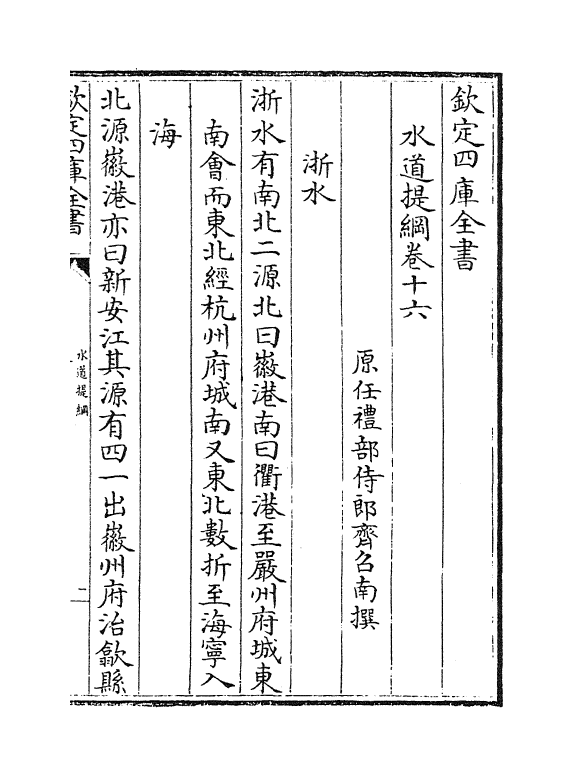 欽定四庫全書
水道提綱卷十六
原任禮部侍郎齊召南撰
浙水
浙水有南北二源北曰徽港南曰衢港至嚴州府城東
南會而東北經杭州府城南又東北數折至海寧入
海
北源徽港亦曰新安江其源有四一出徽州府治歙縣
欽定四庫全書
水道提綱